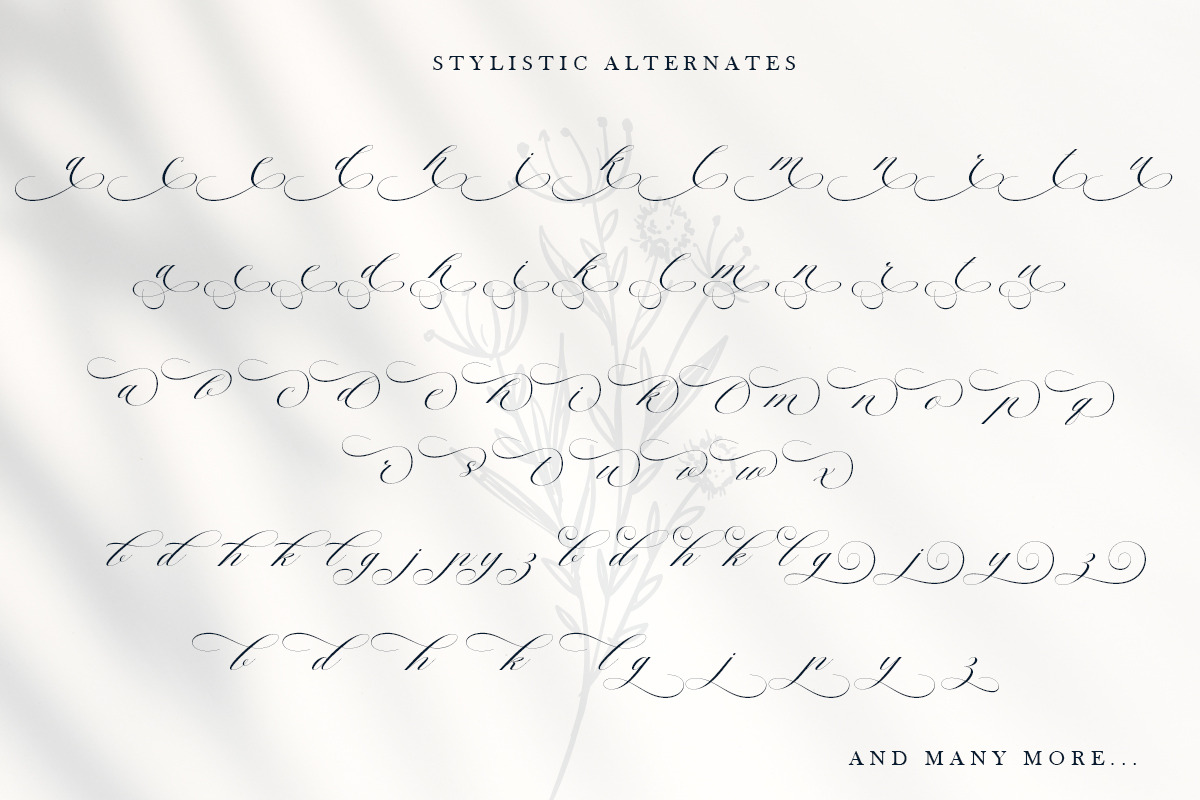 STYLISTIC ALTERNATES
a c e d h i k l m n r t u
a c e d h i k l m n r t u
a b c d e h i k l m n o p q
r s t u v w x
b d h k l g j p y z b d h k l g j y z
b d h k l g j p y z
AND MANY MORE...